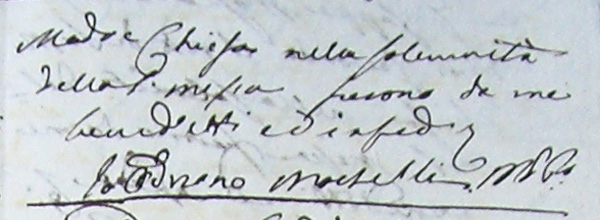 Madre Chiesa nella solennità
della S. messa furono da me
benedetti ed in fede
Io Bruno